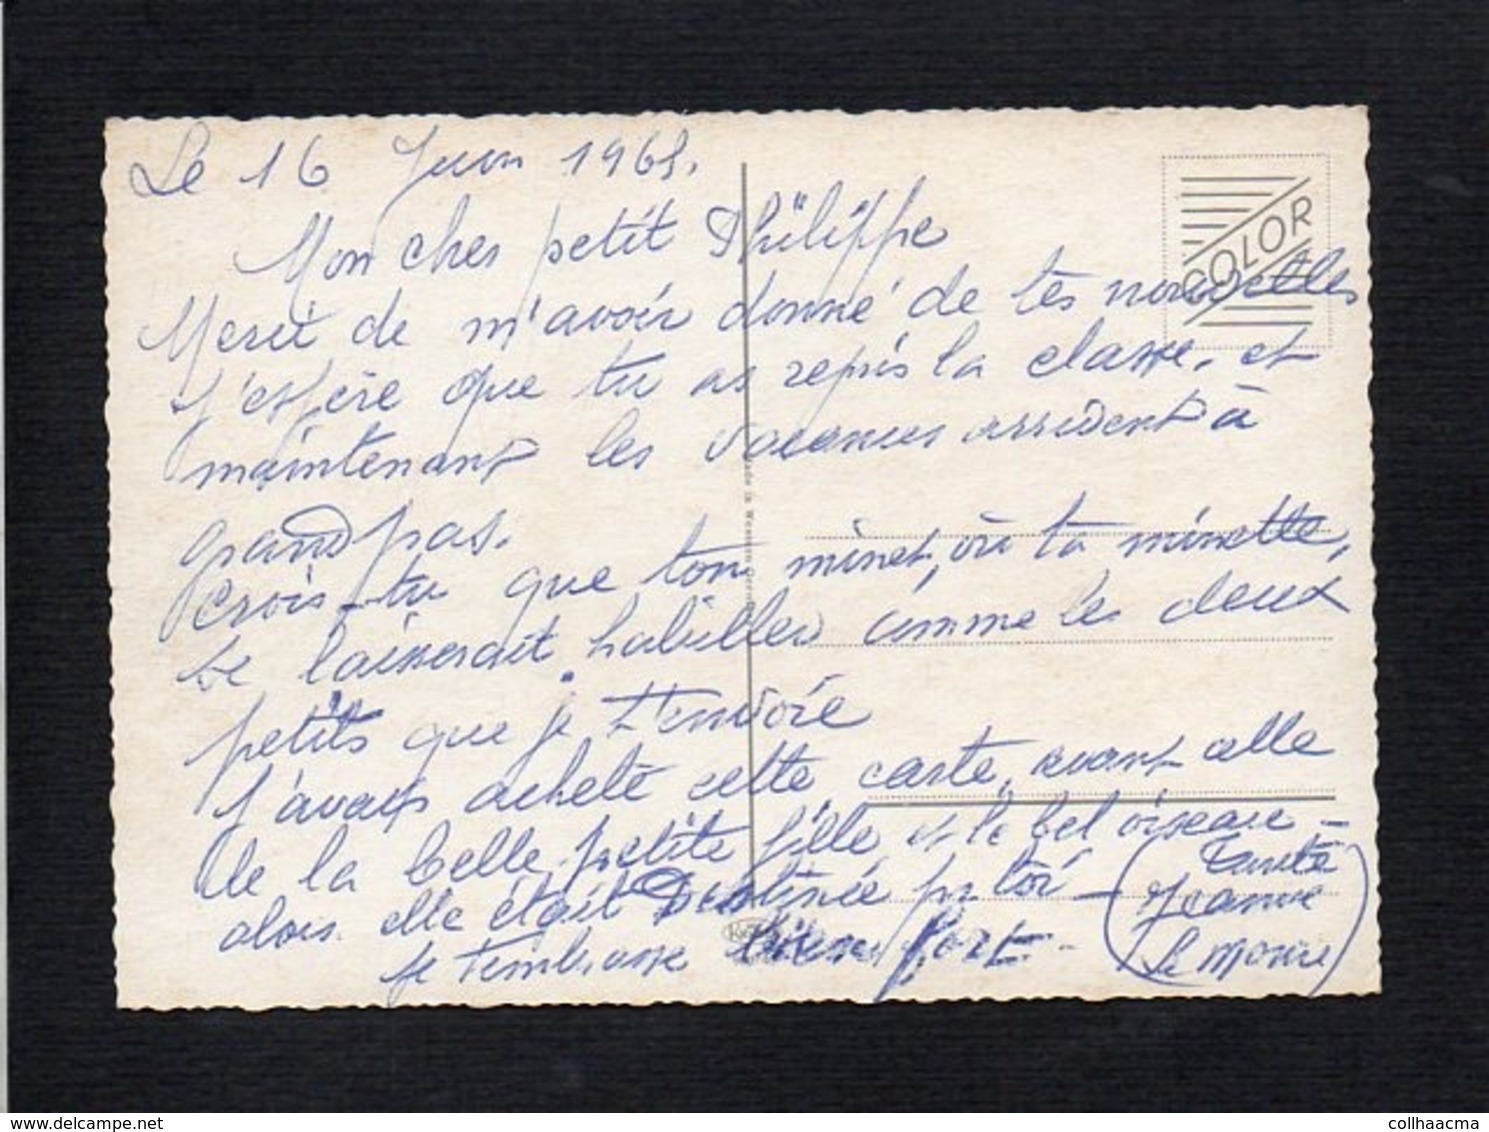 Le 16 Juin 1968.
Mon cher petit Philippe
Merci de m'avoir donné de tes nouvelles
j'espère que tu as repris la classe, et
maintenant les vacances arrivent à
grand pas.
Crois-tu que ton minet, où ta minette,
se laisserait habiller comme les deux
petits que je t'envoie
J'avais acheté cette carte, avant celle
de la belle petite fille et le bel oiseau -
alors elle était Destinée pr toi -
je t'embrasse bien fort -
(Tante
Jeanne
COLOR